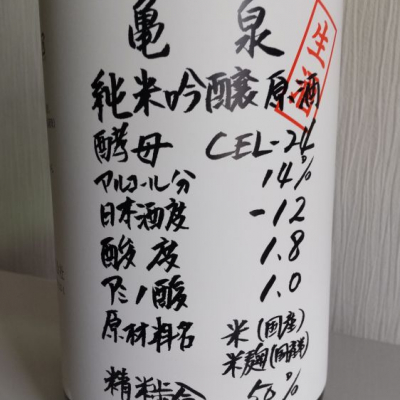 亀泉
純米吟醸原酒
生酒
酵母 CEL-24
アルコール分 14%
日本酒度 -12
酸度 1.8
アミノ酸 1.0
原材料名 米(国産)
米麹(国産米)
精米歩合 50%